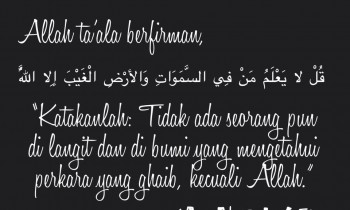 Allah ta'ala berfirman,
قُلْ لا يَعْلَمُ مَنْ فِي السَّمَوَاتِ وَالأرْضِ الْغَيْبَ إِلا اللَّهُ
"Katakanlah: Tidak ada seorang pun
di langit dan di bumi yang mengetahui
perkara yang ghaib, kecuali Allah."